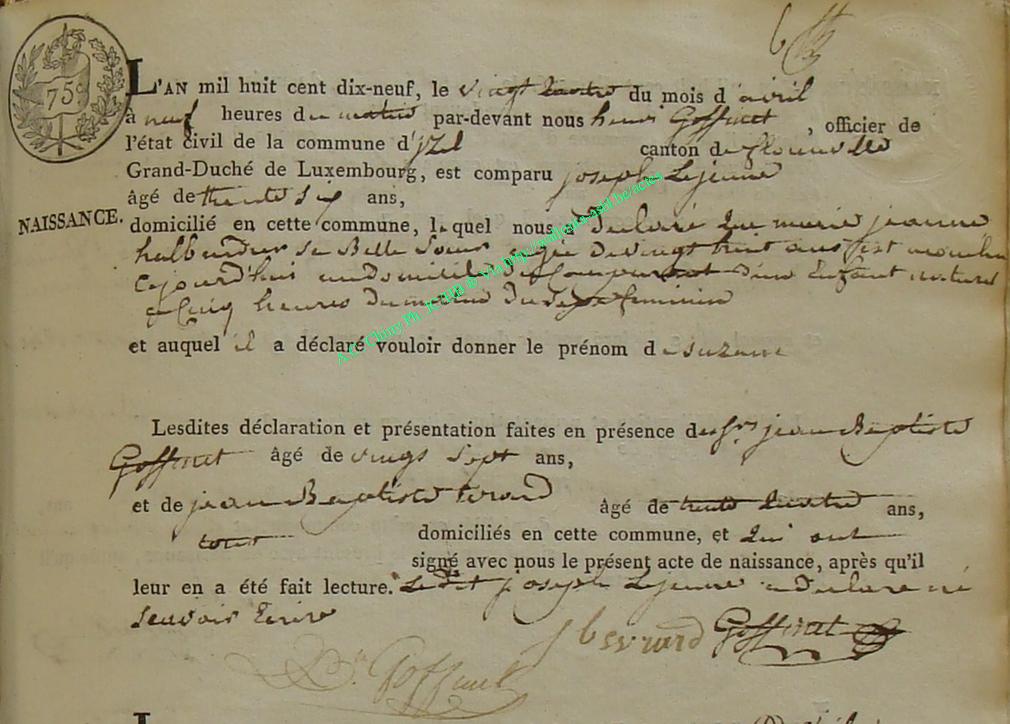 75c
L'AN mil huit cent dix-neuf, le vingt quatre du mois d'avril
à neuf heures du matin par-devant nous henri Goffinet, officier de
l'état civil de la commune d'jzel canton de florenville
Grand-Duché de Luxembourg, est comparu joseph Lejeune
âgé de trente six ans,
NAISSANCE.
domicilié en cette commune, lequel nous a declaré que marie jeanne
sa Belle Soeur agée de vingt huit ans est
cejourd'hui d'un Enfant naturel
a cinq heures du matin du sexe feminin
et auquel il a déclaré vouloir donner le prénom de suzanne
Lesdites déclaration et présentation faites en présence de jean Baptiste
Goffinet âgé de vingt sept ans,
et de jean Baptiste âgé de trente quatre ans,
tous domiciliés en cette commune, et qui ont
signé avec nous le présent acte de naissance, après qu'il
leur en a été fait lecture. Ledit joseph Lejeune a declaré ne
scavoir Ecrire
Goffinet
Goffinet